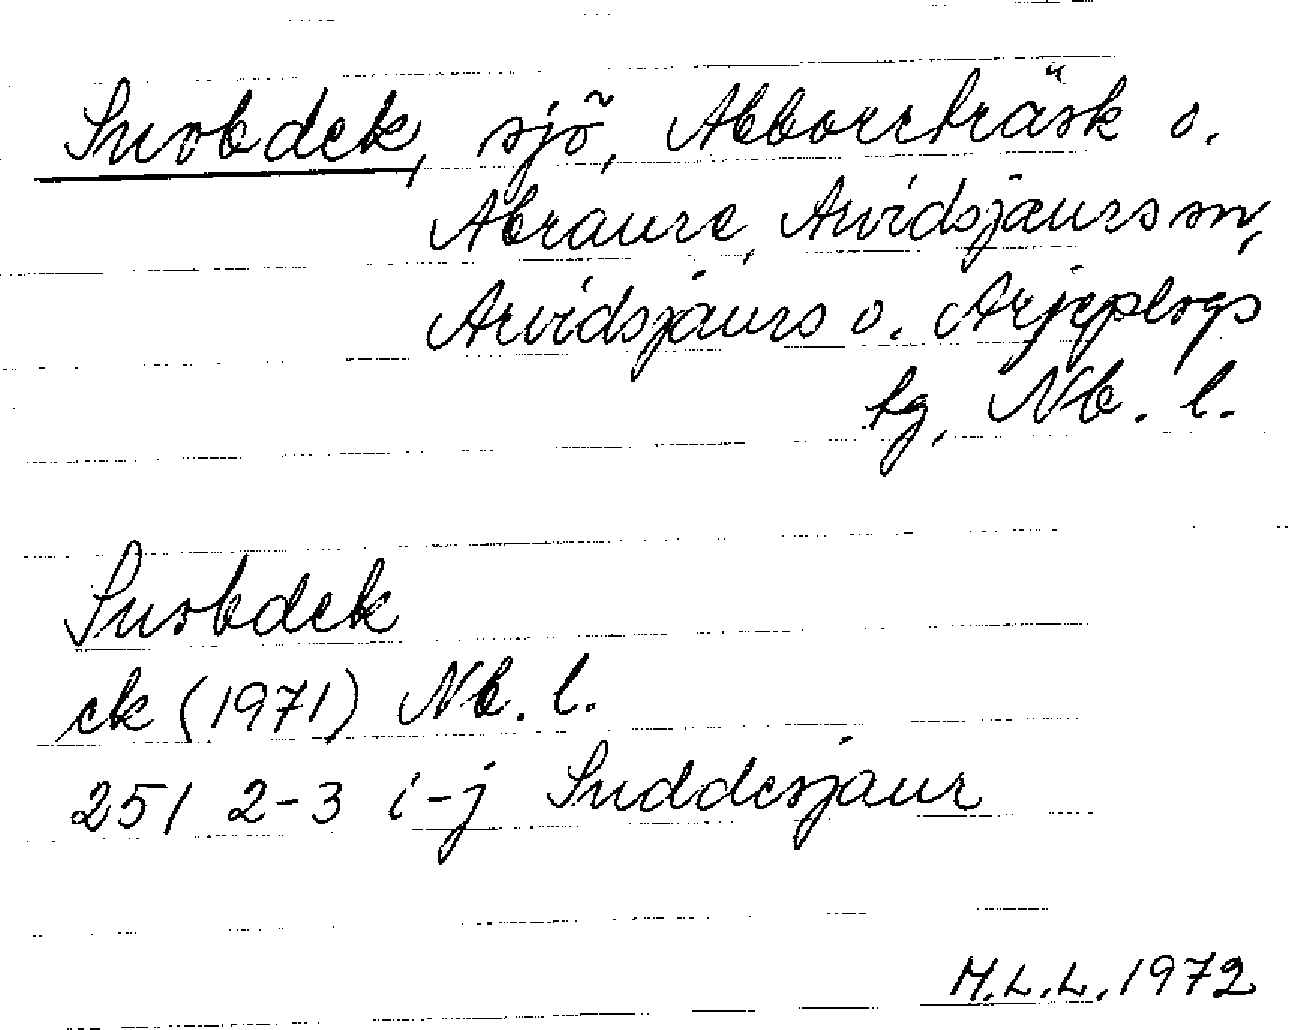 Suobdek, sjö, Abborrträsk o.
Abraure, Arvidsjaurs sn,
Arvidsjaurs o. Arjeplogs
tg, Nb. l.
Suobdek
ek (1971) Nb. l.
25I 2-3 i-j Suddesjaur
M.L.L. 1972